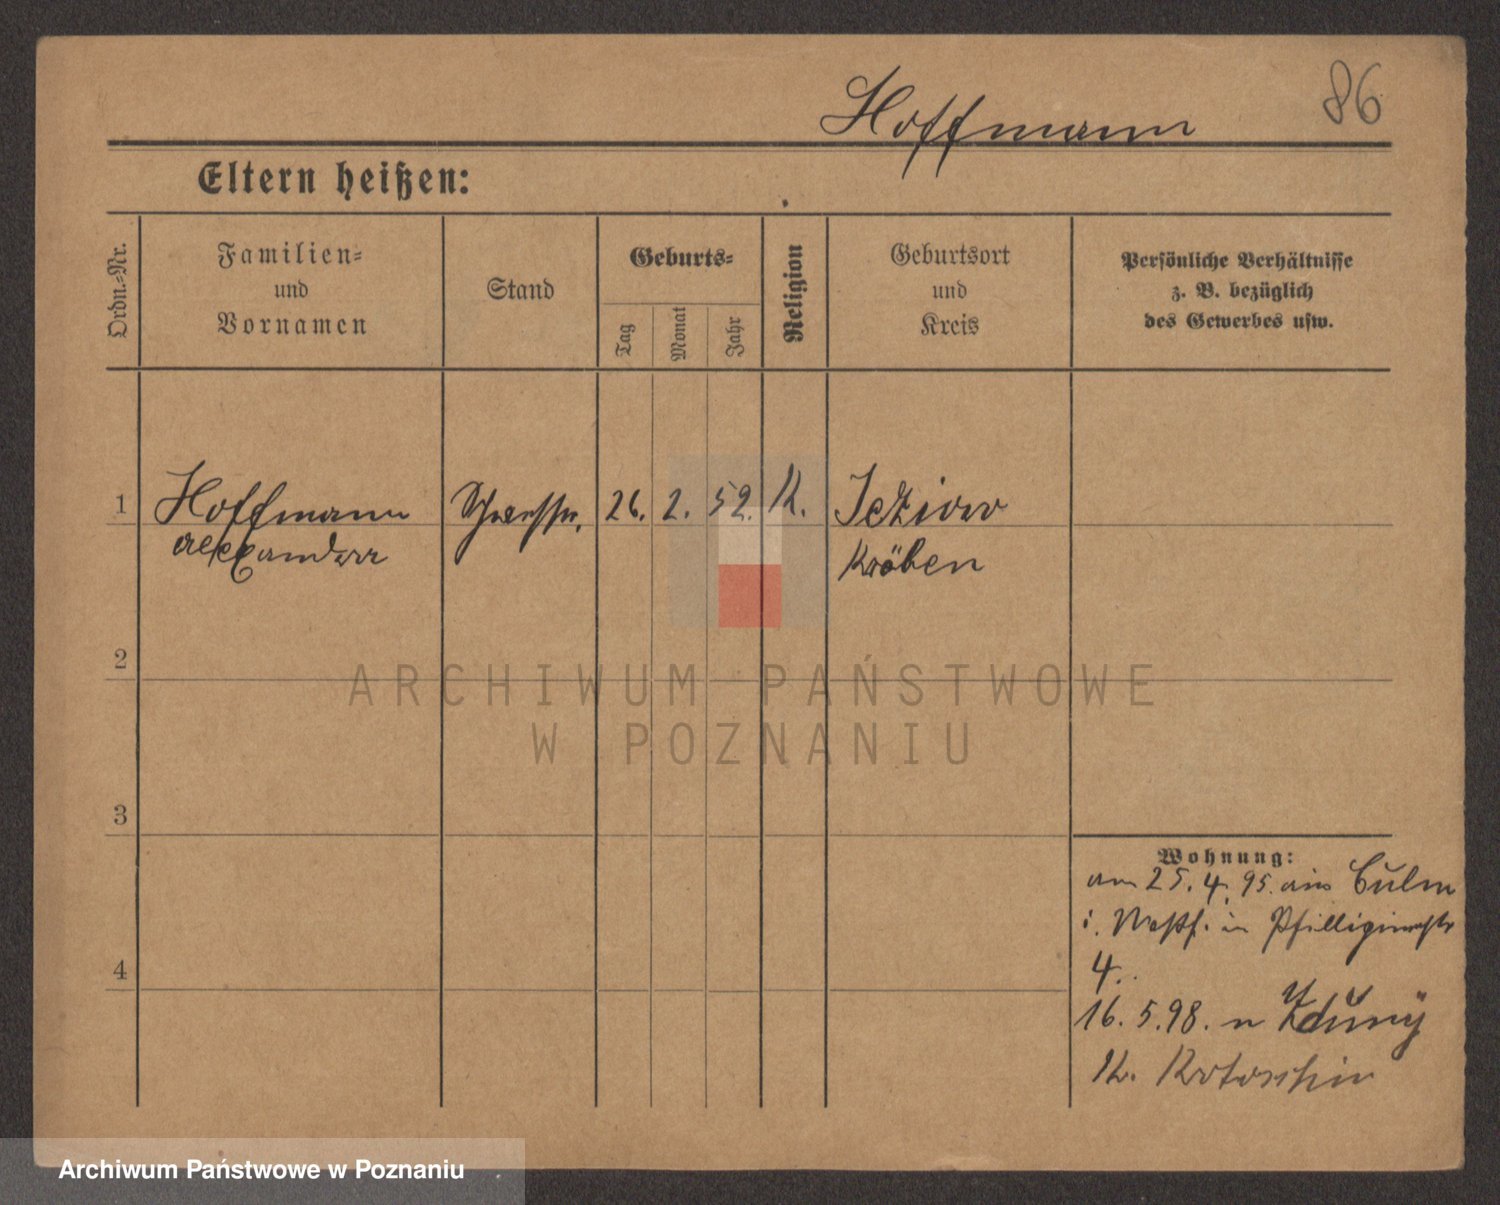 Hoffmann
86
Eltern heißen:
Ordn.-Nr.
Familien-
und
Vornamen
Stand
Geburts-
Tag
Monat
Jahr
Religion
Geburtsort
und
Kreis
Persönliche Verhältnisse
z. B. bezüglich
des Gewerbes usw.
1
Hoffmann
Alexander
26. 2. 52. K.
Jeżiowo
Kröben
2
ARCHIWUM PAŃSTWOWE
W POZNANIU
3
4
Wohnung:
am 25. 4. 95. aus Culm
i. in
4.
16. 5. 98. n Zduny
K. Krotoschin
Archiwum Państwowe w Poznaniu